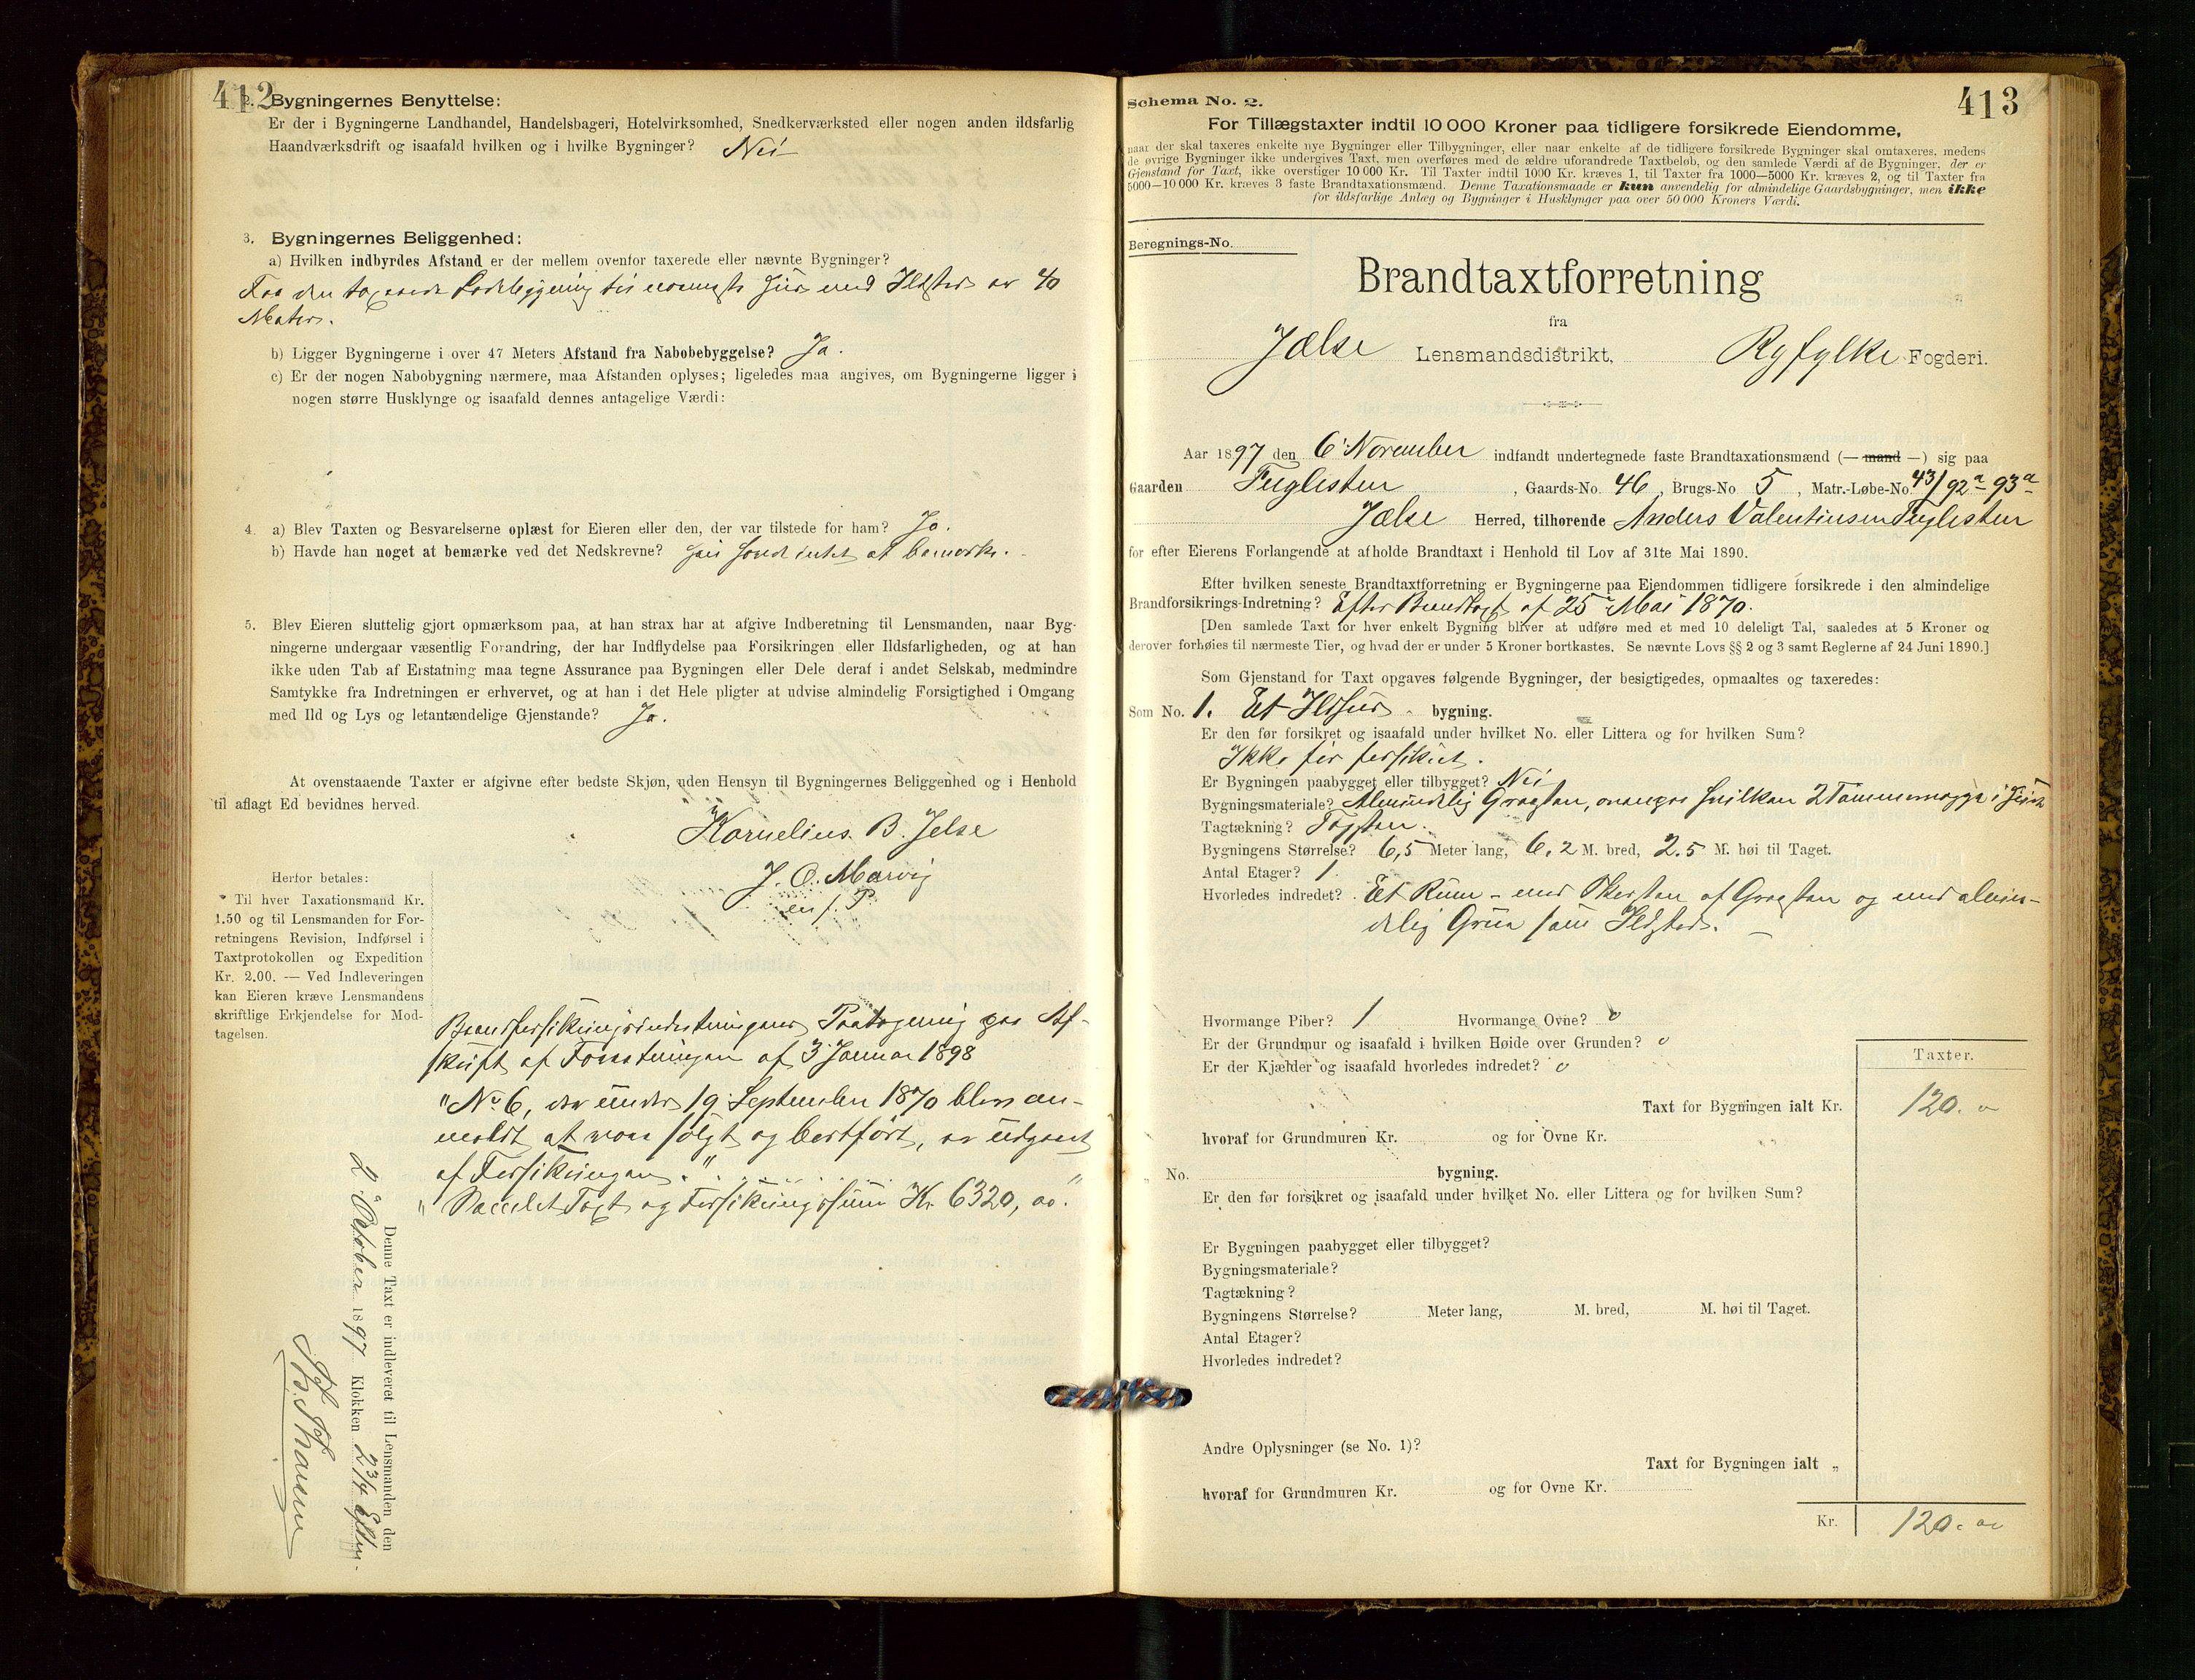 412
2. Bygningernes Benyttelse:
Er der i Bygningerne Landhandel, Handelsbageri, Hotelvirksomhed, Snedkerværksted eller nogen anden ildsfarlig
Haandværksdrift og isaafald hvilken og i hvilke Bygninger? Nei
3. Bygningernes Beliggenhed:
a) Hvilken indbyrdes Afstand er der mellem ovenfor taxerede eller nævnte Bygninger?
Fra den taxerede Ladebygning til nærmeste Hus med Ildsted er 40
Meter.
b) Ligger Bygningerne i over 47 Meters Afstand fra Nabobebyggelse? Ja.
c) Er der nogen Nabobygning nærmere, maa Afstanden oplyses; ligeledes maa angives, om Bygningerne ligger i
nogen større Husklynge og isaafald dennes antagelige Værdi:
4. a) Blev Taxten og Besvarelserne oplæst for Eieren eller den, der var tilstede for ham? Ja.
b) Havde han noget at bemærke ved det Nedskrevne? havde intet at bemærke.
5. Blev Eieren sluttelig gjort opmærksom paa, at han strax har at afgive Indberetning til Lensmanden, naar Byg-
ningerne undergaar væsentlig Forandring, der har Indflydelse paa Forsikringen eller Ildsfarligheden, og at han
ikke uden Tab af Erstatning maa tegne Assurance paa Bygningen eller Dele deraf i andet Selskab, medmindre
Samtykke fra Indretningen er erhvervet, og at han i det Hele pligter at udvise almindelig Forsigtighed i Omgang
med Ild og Lys og letantændelige Gjenstande? Ja.
At ovenstaaende Taxter er afgivne efter bedste Skjøn, uden Hensyn til Bygningernes Beliggenhed og i Henhold
til aflagt Ed bevidnes herved.
Kornelius B. Jelse
J. O. Marvig
m. f. P.
Herfor betales:
* Til hver Taxationsmand Kr.
1.50 og til Lensmanden for For-
retningens Revision, Indførsel i
Taxtprotokollen og Expedition
Kr. 2.00. — Ved Indleveringen
kan Eieren kræve Lensmandens
skriftlige Erkjendelse for Mod-
tagelsen.
Brandforsikringsindretningens Paategning paa Af-
skrift af Forretningen af 3 Januar 1898
"No 6, der under 19 September 1870 blev an-
meldt at være solgt og bortført, er udgaaet
af Forsikringen."
"Samlet Taxt og Forsikringssum Kr. 6320, oo."
Denne Taxt er indleveret til Lensmanden den
2 October 1897 Klokken 2 3/4 Efterm.
413
Schema No. 2.
For Tillægstaxter indtil 10 000 Kroner paa tidligere forsikrede Eiendomme,
naar der skal taxeres enkelte nye Bygninger eller Tilbygninger, eller naar enkelte af de tidligere forsikrede Bygninger skal omtaxeres, medens
de øvrige Bygninger ikke undergives Taxt, men overføres med de ældre uforandrede Taxtbeløb, og den samlede Værdi af de Bygninger, der er
Gjenstand for Taxt, ikke overstiger 10 000 Kr. Til Taxter indtil 1000 Kr. kræves 1, til Taxter fra 1000—5000 Kr. kræves 2, og til Taxter fra
5000—10 000 Kr. kræves 3 faste Brandtaxationsmænd. Denne Taxationsmaade er kun anvendelig for almindelige Gaardsbygninger, men ikke
for ildsfarlige Anlæg og Bygninger i Husklynger paa over 50 000 Kroners Værdi.
Beregnings-No.
Brandtaxtforretning
fra
Jælse Lensmandsdistrikt, Ryfylke Fogderi.
Aar 1897 den 6 November indfandt undertegnede faste Brandtaxationsmænd (— mand —) sig paa
Gaarden Fuglesten, Gaards-No. 46, Brugs-No 5, Matr.-Løbe-No. 43/92a-93a
Jælse Herred, tilhørende Anders Valentinsen Fuglesten
for efter Eierens Forlangende at afholde Brandtaxt i Henhold til Lov af 31te Mai 1890.
Efter hvilken seneste Brandtaxtforretning er Bygningerne paa Eiendommen tidligere forsikrede i den almindelige
Brandforsikrings-Indretning? Efter Brandtaxt af 25 Mai 1870.
[Den samlede Taxt for hver enkelt Bygning bliver at udføre med et med 10 deleligt Tal, saaledes at 5 Kroner og
derover forhøies til nærmeste Tier, og hvad der er under 5 Kroner bortkastes. Se nævnte Lovs §§ 2 og 3 samt Reglerne af 24 Juni 1890.]
Som Gjenstand for Taxt opgaves følgende Bygninger, der besigtigedes, opmaaltes og taxeredes:
Som No. 1. Et Ildhus bygning.
Er den før forsikret og isaafald under hvilket No. eller Littera og for hvilken Sum?
Ikke før forsikret.
Er Bygningen paabygget eller tilbygget? Nei
Bygningsmateriale? Almindelig Graasten, ovenpaa hvilken 2 Tømmervægge i
Tagtækning? Tagsten.
Bygningens Størrelse? 6,5 Meter lang, 6,2 M. bred, 2.5 M. høi til Taget.
Antal Etager? 1.
Hvorledes indredet? Et Rum - med Skorsten af Graasten og med almin-
delig Grue som Ildsted.
Hvormange Piber? 1 Hvormange Ovne? o
Er der Grundmur og isaafald i hvilken Høide over Grunden? o
Er der Kjælder og isaafald hvorledes indredet? o
Taxter.
Taxt for Bygningen ialt Kr. 120. o
hvoraf for Grundmuren Kr. og for Ovne Kr.
„ No. bygning.
Er den før forsikret og isaafald under hvilket No. eller Littera og for hvilken Sum?
Er Bygningen paabygget eller tilbygget?
Bygningsmateriale?
Tagtækning?
Bygningens Størrelse? Meter lang, M. bred, M. høi til Taget.
Antal Etager?
Hvorledes indredet?
Andre Oplysninger (se No. 1)?
Taxt for Bygningen ialt „
hvoraf for Grundmuren Kr. og for Ovne Kr.
Kr. 120. oo